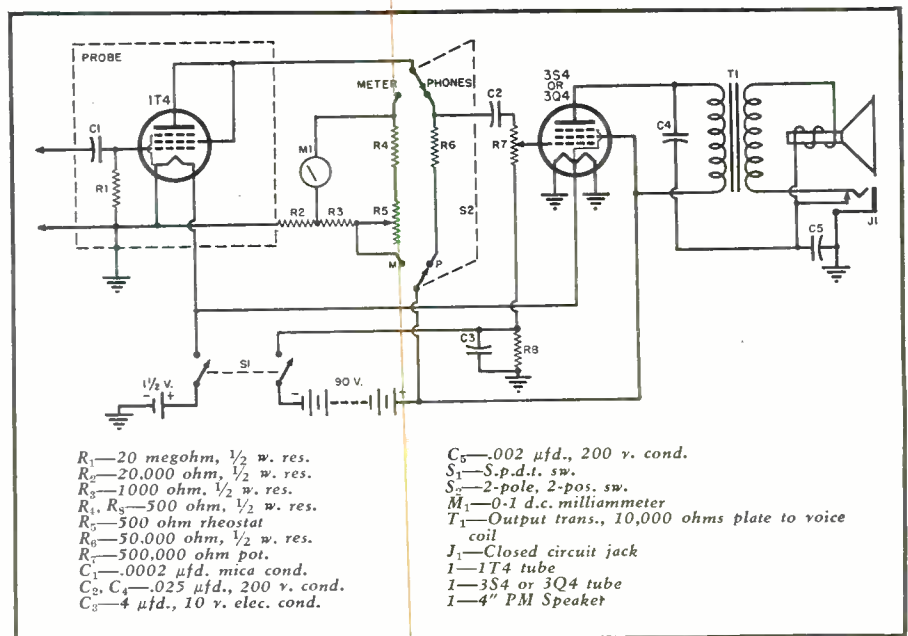 PROBE
1T4
C1
R1
METER
PHONES
M1
R4
R2
R3
R5
R6
S2
M
P
C2
R7
3S4
OR
3Q4
C4
T1
J1
C5
C3
R8
S1
1½ V.
- +
90 V.
- +
R₁—20 megohm, ½ w. res.
R₂—20,000 ohm, ½ w. res.
R₃—1000 ohm, ½ w. res.
R₄, R₈—500 ohm, ½ w. res.
R₅—500 ohm rheostat
R₆—50,000 ohm, ½ w. res.
R₇—500,000 ohm pot.
C₁—.0002 µfd. mica cond.
C₂, C₄—.025 µfd., 200 v. cond.
C₃—4 µfd., 10 v. elec. cond.
C₅—.002 µfd., 200 v. cond.
S₁—S.p.d.t. sw.
S₂—2-pole, 2-pos. sw.
M₁—0-1 d.c. milliammeter
T₁—Output trans., 10,000 ohms plate to voice
coil
J₁—Closed circuit jack
1—1T4 tube
1—3S4 or 3Q4 tube
1—4" PM Speaker